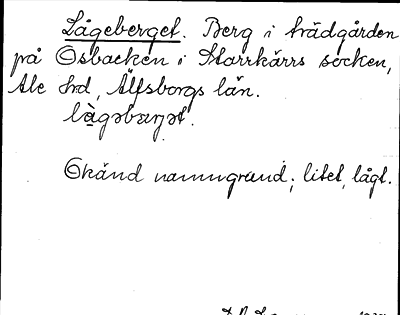 Lågeberget. Berg i trädgården
på Osbacken i Starrkärrs socken,
Ale hrd, Älfsborgs län.
Okänd namngrund; litet, lågt.